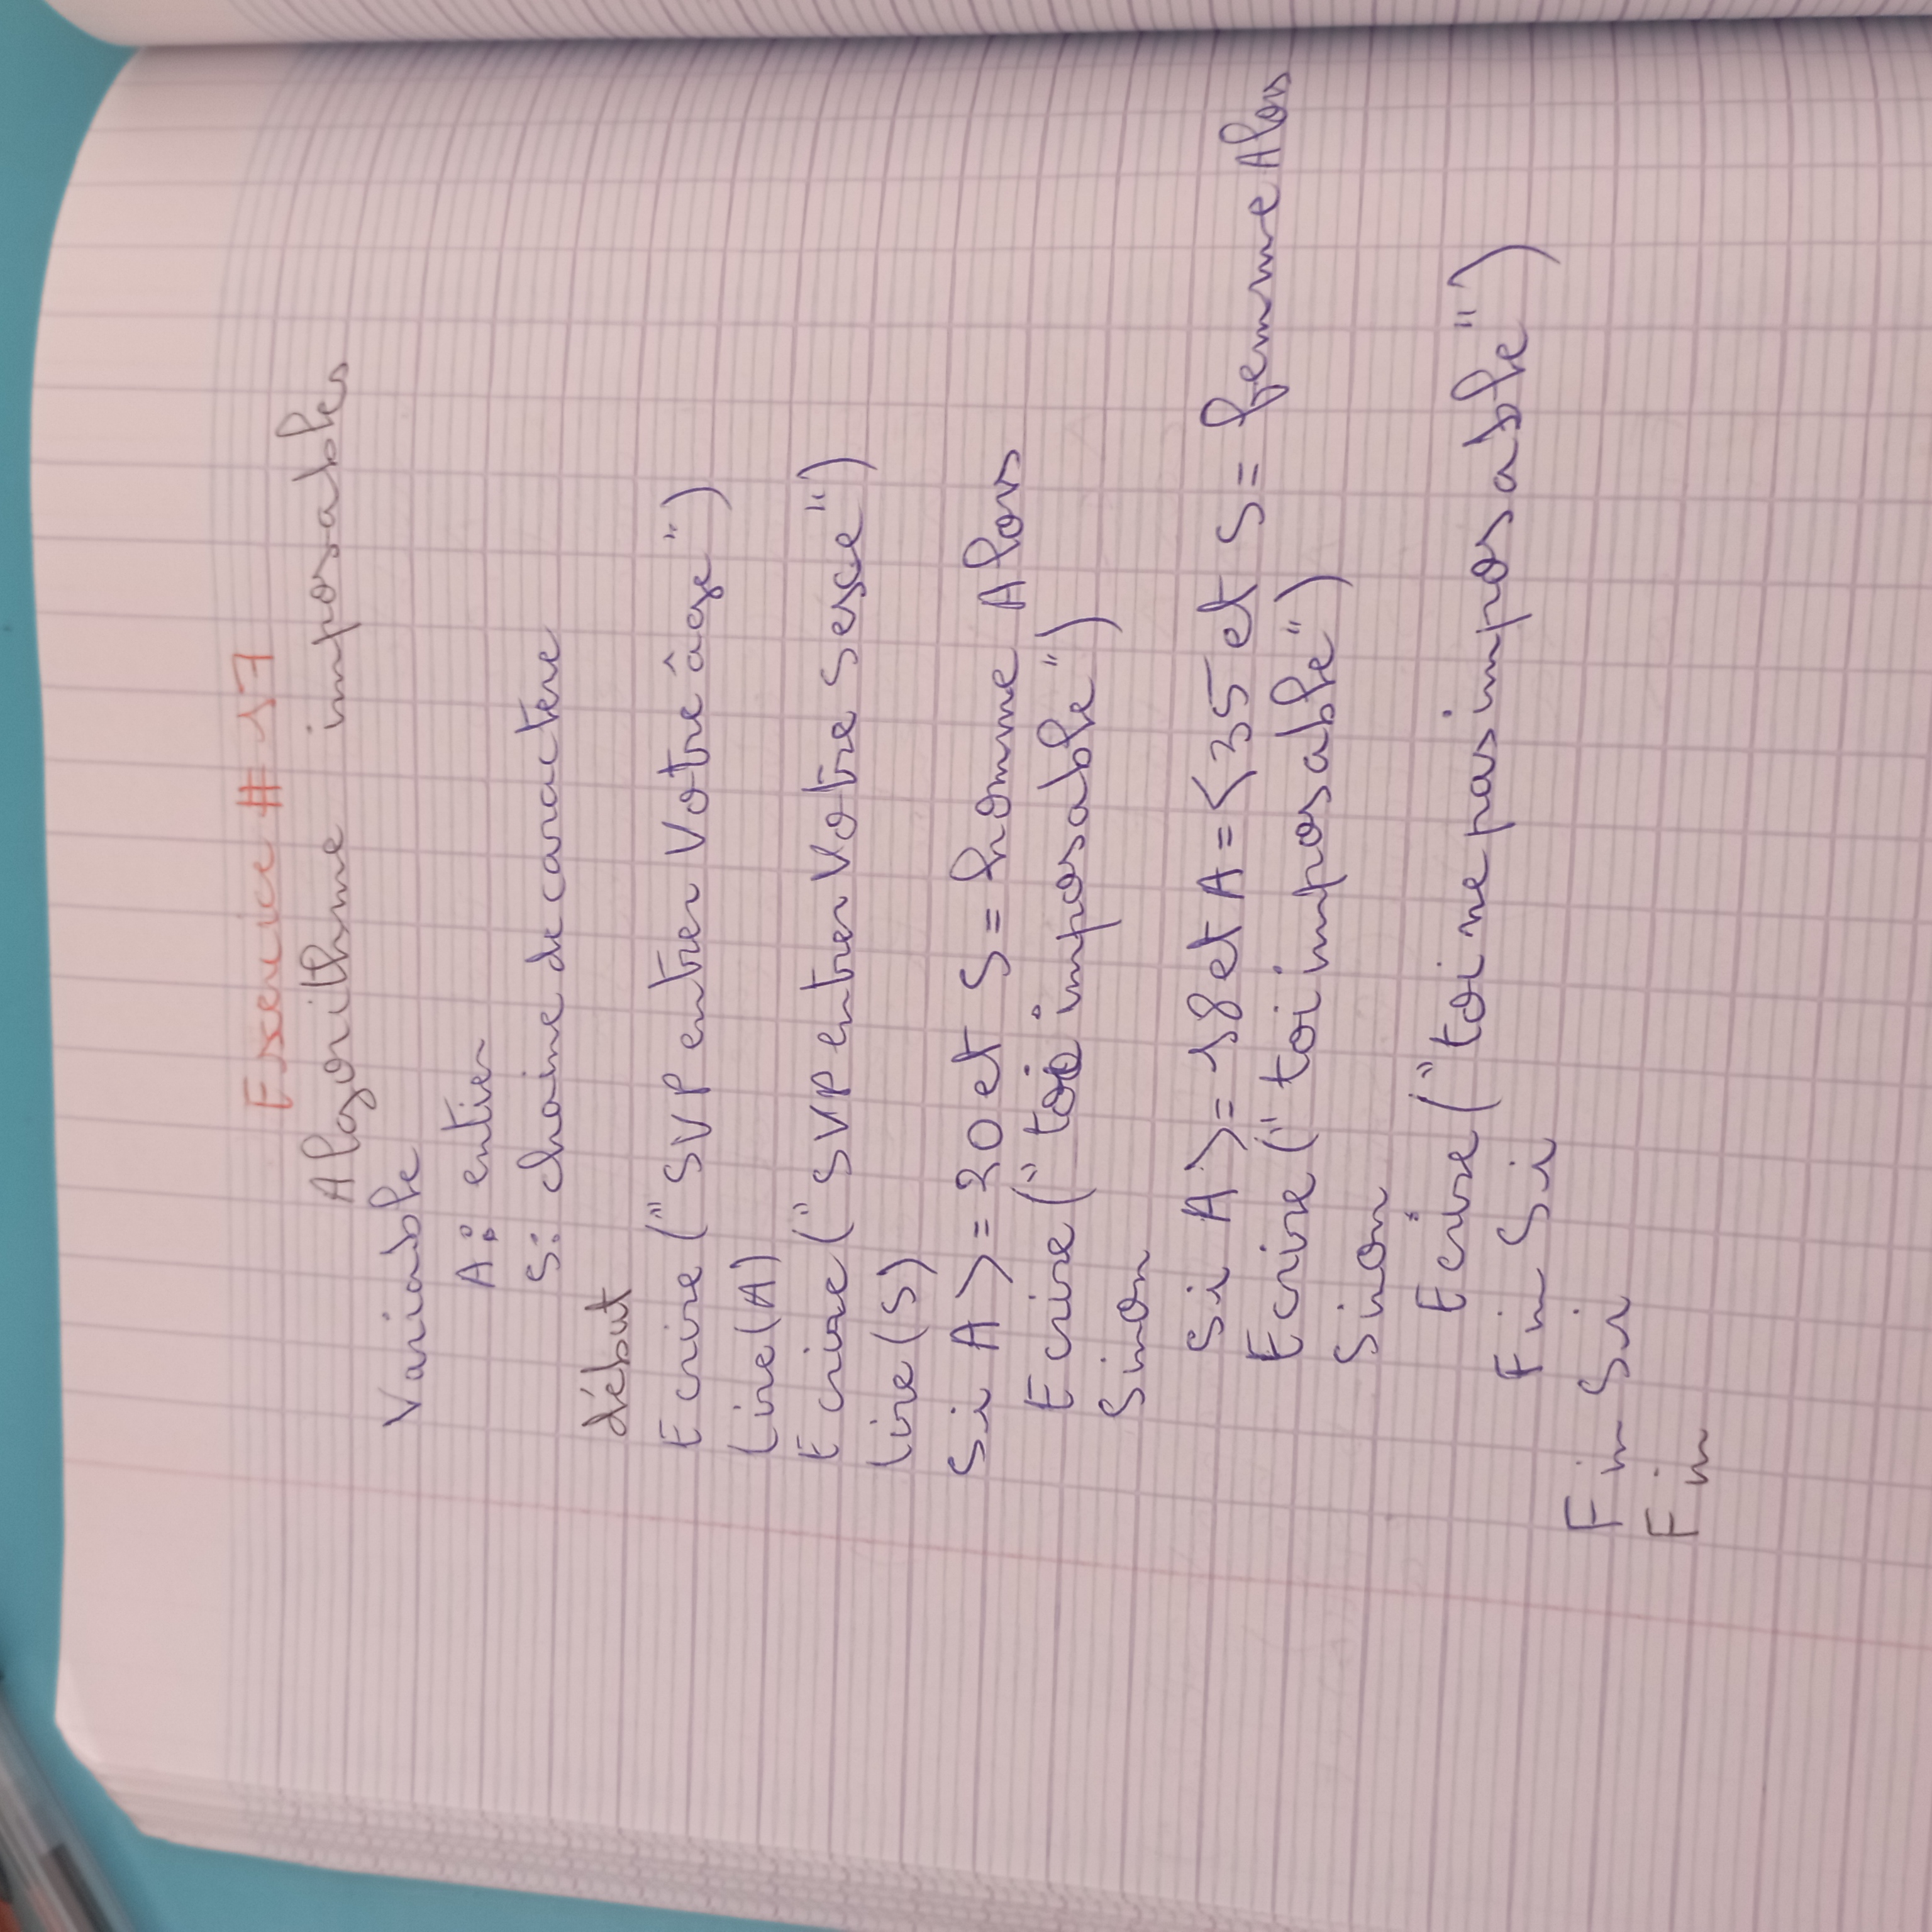 Exercice # 17
Algorithme imposables
Variable
A: entier
S: chaine de caractère
début
Ecrire ("SVP entrer Votre âge")
Lire(A)
Ecrire ("SVP entrer Votre Sexe")
lire (S)
Si A >= 20 et S = homme Alors
Ecrire ("toi imposable")
Sinon
Si A >= 18 et A =< 35 et S = femme Alors
Ecrire ("toi imposable")
Sinon
Ecrire ("toi ne pas imposable")
Fin Si
Fin Si
Fin